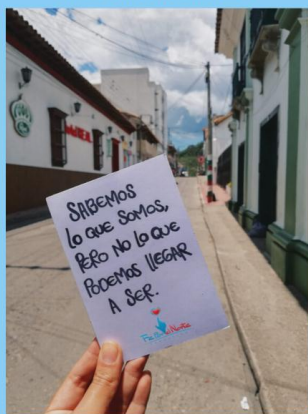 SABEMOS
lo QUE SOMOS,
PERO NO lo QUE
PODEMOS llEGAR
A SER.